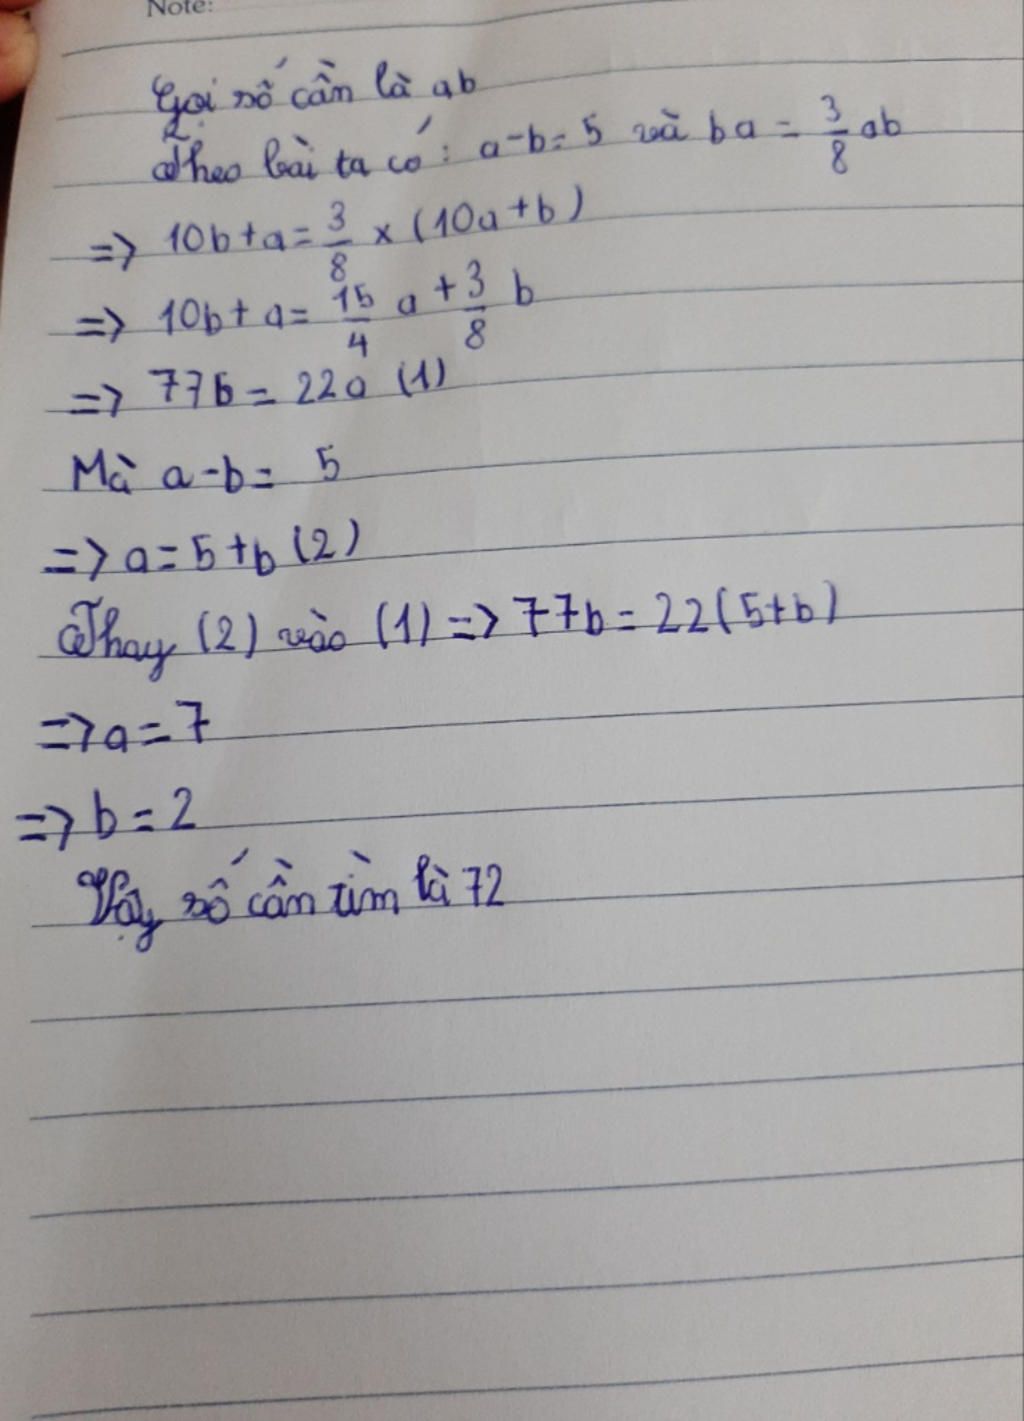 Note:
Gọi số cần là ab
Theo bài ta có: a-b=5 và ba = 3/8 ab
=> 10b+a= 3/8 x (10a+b)
=> 10b+a= 15/4 a + 3/8 b
=> 77b = 22a (1)
Mà a-b= 5
=> a=5+b (2)
Thay (2) vào (1) => 77b=22(5+b)
=> a=7
=> b=2
Vậy số cần tìm là 72